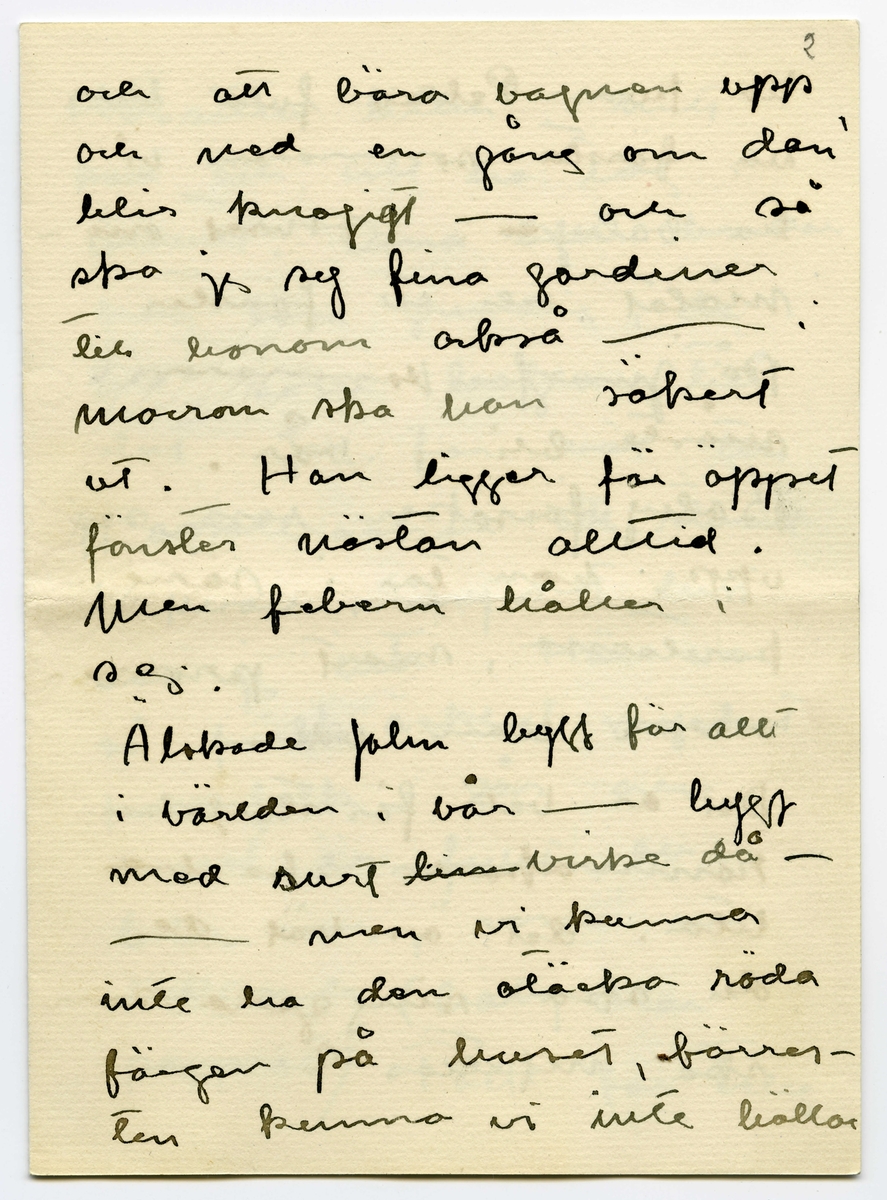 2
och att bära vagnen upp
och ned en gång om dan'
blir knogigt — och så
ska jg sy fina gardiner
till honom också — .
Morron ska han säkert
ut. Han ligger för öppet
fönster nästan alltid.
Men febern håller i
sej.
Älskade John bygg för allt
i världen i vår — bygg
med surt virke då —
— men vi kunna
inte ha den otäcka röda
färgen på huset, förres-
ten kunna vi inte hålla